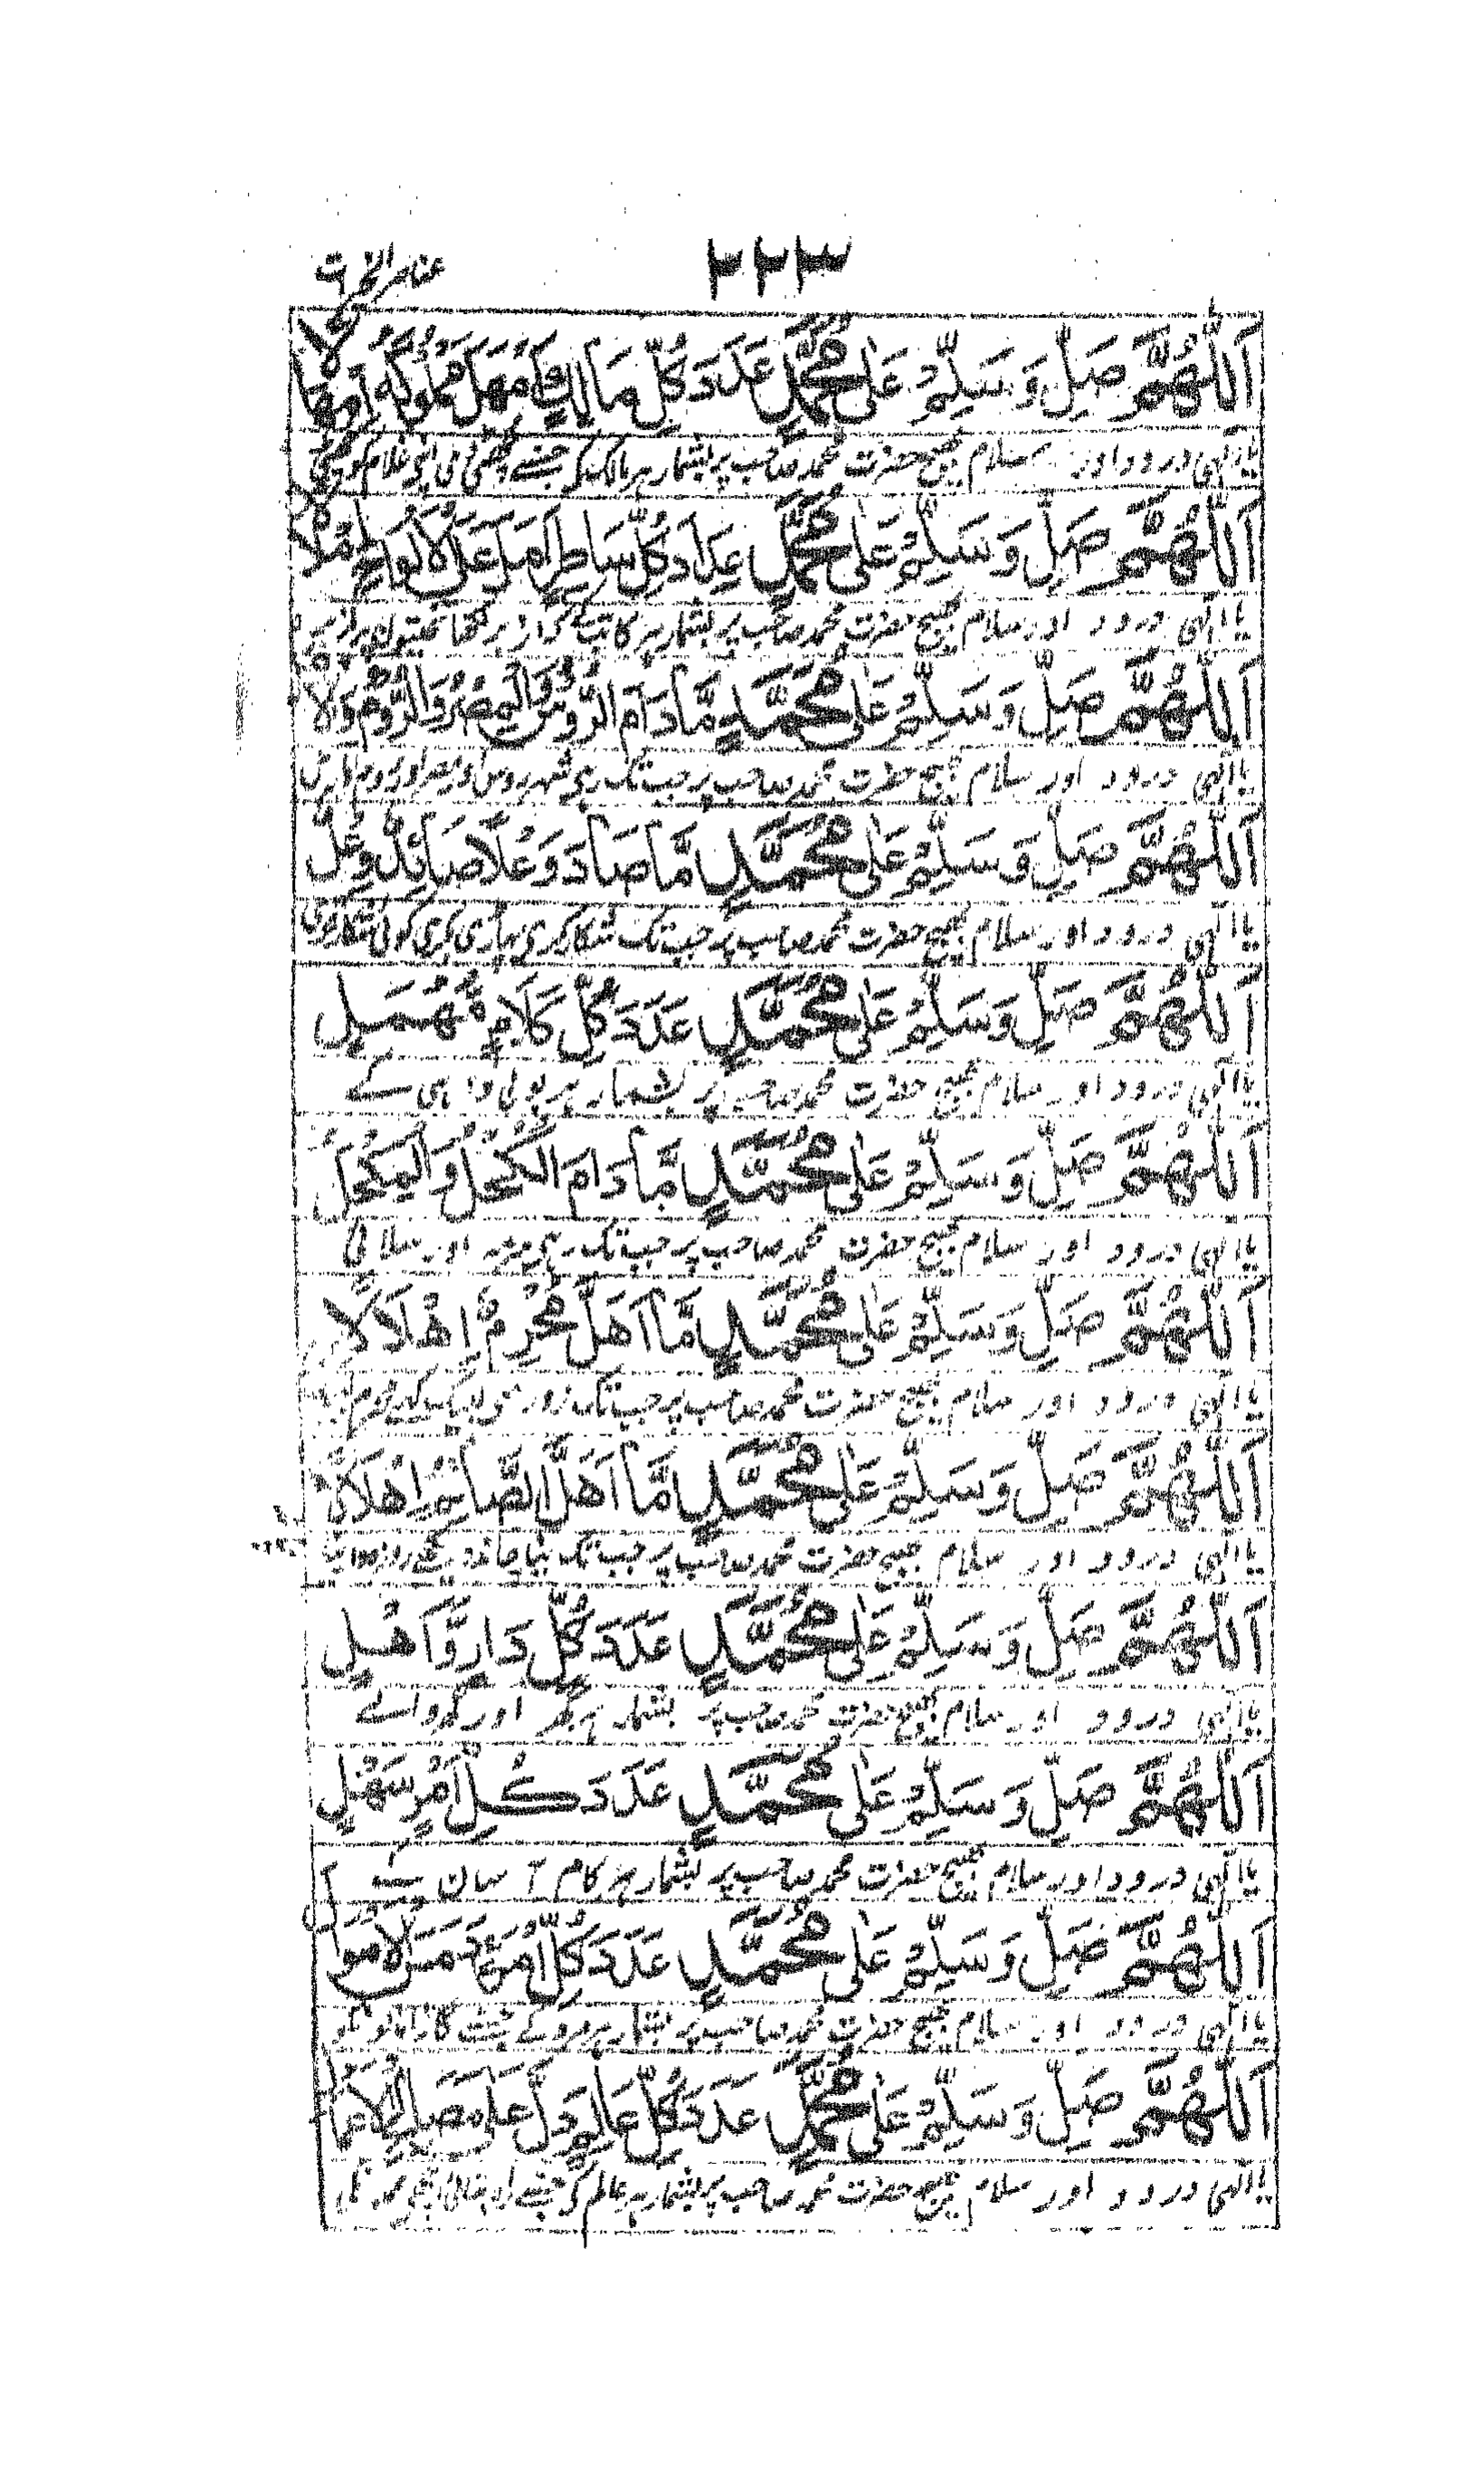 ٣٢٢
عناصر الخیرات
اَللّٰهُمَّ صَلِّ وَسَلِّمْ عَلٰى مُحَمَّدٍ عَدَدَ كُلِّ مَالِكٍ اَمْهَلَ مَمْلُوْكَهٗ اِمْهَالًا
یا الٰہی درود اور سلام بھیج حضرت محمد صاحب پر بشمار ہر مالک کر جسنے اپنی غلام کو
اَللّٰهُمَّ صَلِّ وَسَلِّمْ عَلٰى مُحَمَّدٍ عَدَدَ كُلِّ سَاطِرٍ اَمَلَّ عَلَى الْاَلْوَاحِ اِمْلَالًا
یا الٰہی درود اور سلام بھیج حضرت محمد صاحب پر بشمار ہر کاتب کے
اَللّٰهُمَّ صَلِّ وَسَلِّمْ عَلٰى مُحَمَّدٍ مَّا دَامَ الرُّوْسُ وَالْمِصْرُ وَالرُّوْمُ وَلَا
یا الٰہی درود اور سلام بھیج حضرت محمد صاحب پر جب تک رہی شہر روس اور مصر اور روم
اَللّٰهُمَّ صَلِّ وَسَلِّمْ عَلٰى مُحَمَّدٍ مَّا صَادَ وَعْلًا صَائِدُ وَعْلٍ
یا الٰہی درود اور سلام بھیج حضرت محمد صاحب پر جب تک شکار کری پہاڑی بکری کو
اَللّٰهُمَّ صَلِّ وَسَلِّمْ عَلٰى مُحَمَّدٍ عَدَدَ كُلِّ كَلَامٍ مُّهْمَلٍ
یا الٰہی درود اور سلام بھیج حضرت محمد صاحب پر بشمار ہر بولی واہی کے
اَللّٰهُمَّ صَلِّ وَسَلِّمْ عَلٰى مُحَمَّدٍ مَّا دَامَ الْكُحْلُ وَالْمِكْحَلُ
یا الٰہی درود اور سلام بھیج حضرت محمد صاحب پر جب تک رہی سرمہ اور سلائی
اَللّٰهُمَّ صَلِّ وَسَلِّمْ عَلٰى مُحَمَّدٍ مَّا اَهَلَّ مُحْرِمٌ اِهْلَالًا
یا الٰہی درود اور سلام بھیج حضرت محمد صاحب پر جب تک زور سی لبیک کہے محرم
اَللّٰهُمَّ صَلِّ وَسَلِّمْ عَلٰى مُحَمَّدٍ مَّا اَهَلَّ الصَّائِمُ اِهْلَالًا
یا الٰہی درود اور سلام بھیج حضرت محمد صاحب پر جب تک نیا چاند دیکھے روزہ دار
اَللّٰهُمَّ صَلِّ وَسَلِّمْ عَلٰى مُحَمَّدٍ عَدَدَ كُلِّ دَارٍ وَّاَهْلٍ
یا الٰہی درود اور سلام بھیج حضرت محمد صاحب پر بشمار ہر گھر اور گھر والے
اَللّٰهُمَّ صَلِّ وَسَلِّمْ عَلٰى مُحَمَّدٍ عَدَدَ كُلِّ اَمْرٍ سَهْلٍ
یا الٰہی درود اور سلام بھیج حضرت محمد صاحب پر بشمار ہر کام آسان کے
اَللّٰهُمَّ صَلِّ وَسَلِّمْ عَلٰى مُحَمَّدٍ عَدَدَ كُلِّ
یا الٰہی درود اور سلام بھیج حضرت محمد صاحب پر بشمار ہر
اَللّٰهُمَّ صَلِّ وَسَلِّمْ عَلٰى مُحَمَّدٍ عَدَدَ كُلِّ عَالِمٍ دَلَّ عَلٰى
یا الٰہی درود اور سلام بھیج حضرت محمد صاحب پر بشمار ہر عالم کی جسنے راہ بتائی